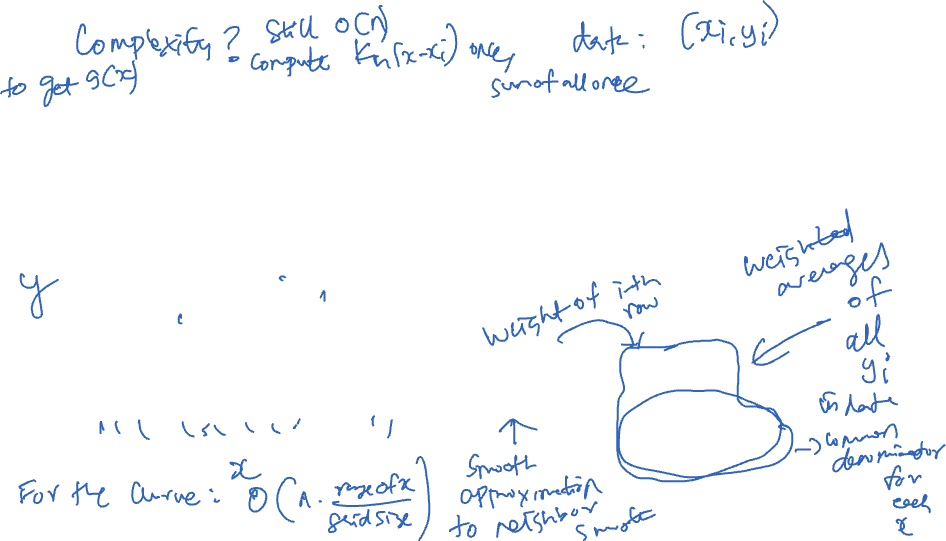 Complexity? still O(n)
to get g(x)
• compute Kh(x-xi) once,
sum of all once
data: (xi, yi)
weighted
averages
of
all
yi
in data
y
weight of i-th
row
→ common
denominator
for
each
x
x
For the curve: O(n · range of x / grid size)
smooth
approximation
to neighbor
smooth